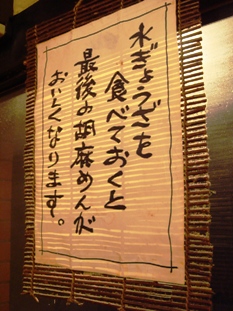 水ぎょうざを
食べておくと
最後の胡麻めんが
おいしくなります。